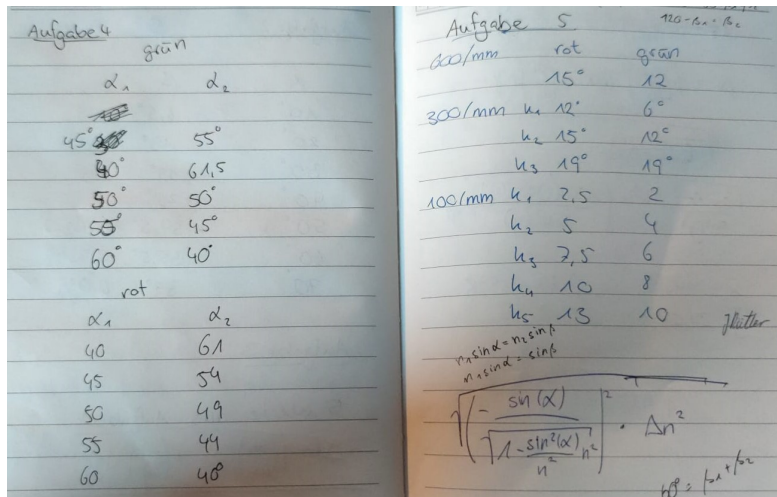 Aufgabe 4
grün
α₁ α₂
45° 55°
40° 61,5
50° 50°
55° 45°
60° 40°
rot
α₁ α₂
40 61
45 54
50 49
55 44
60 40°
Aufgabe 5
600/mm rot grün
15° 12
300/mm k₁ 12° 6°
k₂ 15° 12°
k₃ 19° 19°
100/mm k₁ 2,5 2
k₂ 5 4
k₃ 7,5 6
k₄ 10 8
k₅ 13 10
n₁ sin α = n₂ sin β
n₁ sin α = sin β
√((- sin(α) / √(1 - sin²(α)/n²) n²)² · Δn²)
60° = β₁ + β₂